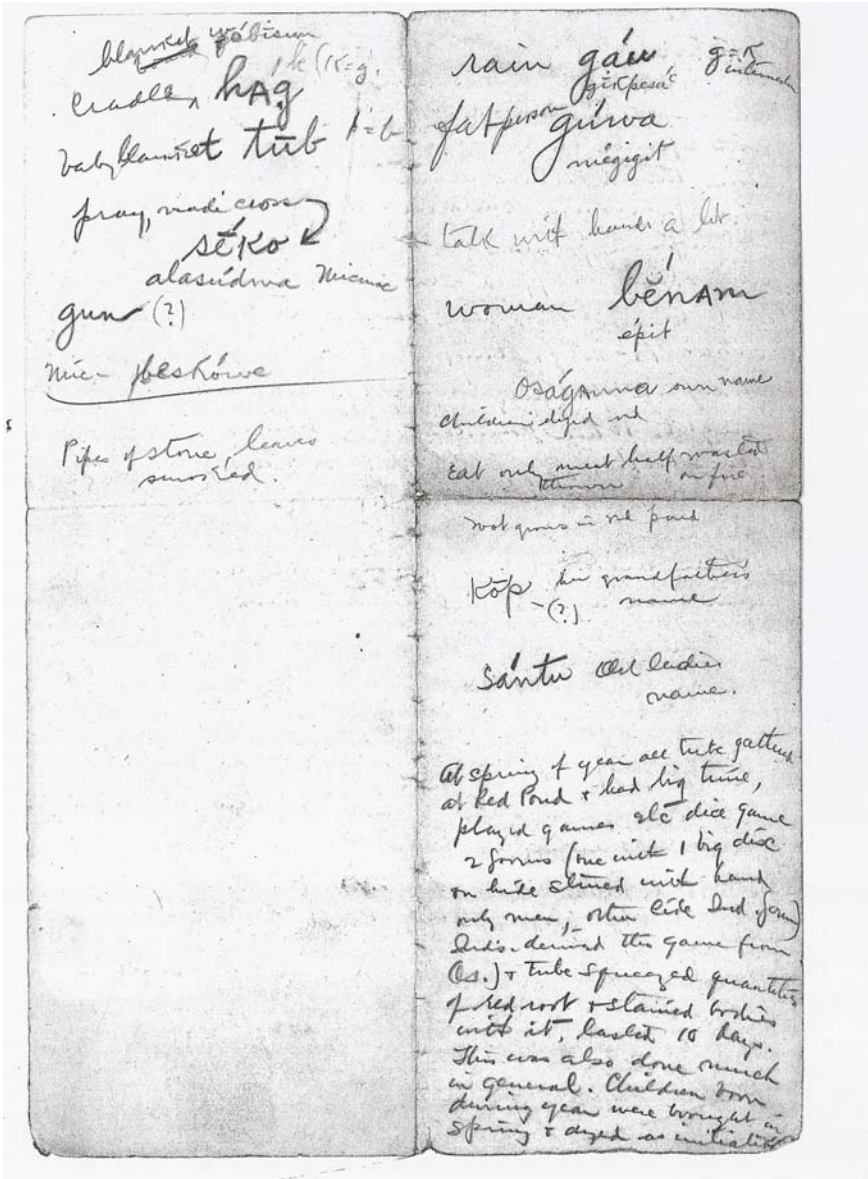 blanket wóbisun
cradle, hᴀ́g k (k=g)
baby blanket tūb p=b
pray, made cross
sḗko
alasúdwa Micmac
gun (?)
Mic- peskówe
Pipes of stone, leaves
smoked.
rain gáu g=k
gíkpesáć intermed
fat person gúwa
mégigit
talk with hands a lot.
woman bĕ́nᴀm
épit
Oságᴀnna own name
Children dyed red
Eat only meat half roasted
thrown on fire
root grows in red pond
Kōp her grandfather's
(?) name
Sántu Old ladies
name.
At spring of year all tribe gathered
at Red Pond & had big time,
played games etc dice game
2 forms (one with 1 big dice
on hide struck with hand
only men, other like Ind. form)
Inds. derived this game from
Os.) & tribe squeezed quantities
of red root & stained bodies
with it, lasted 10 days.
This was also done much
in general. Children born
during year were brought in
Spring & dyed as initiation